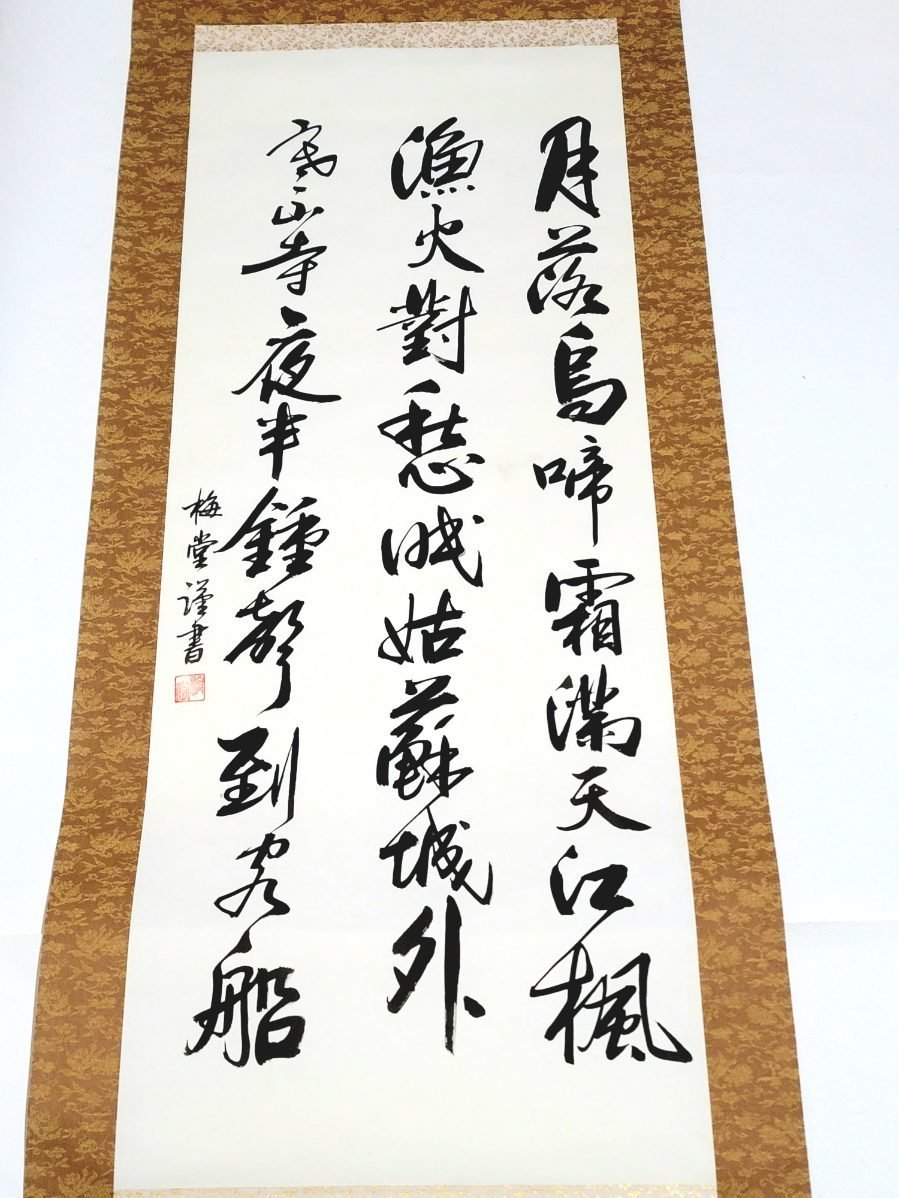 月落烏啼霜滿天江楓
漁火對愁眠姑蘇城外
寒山寺夜半鍾聲到客船
梅堂謹書